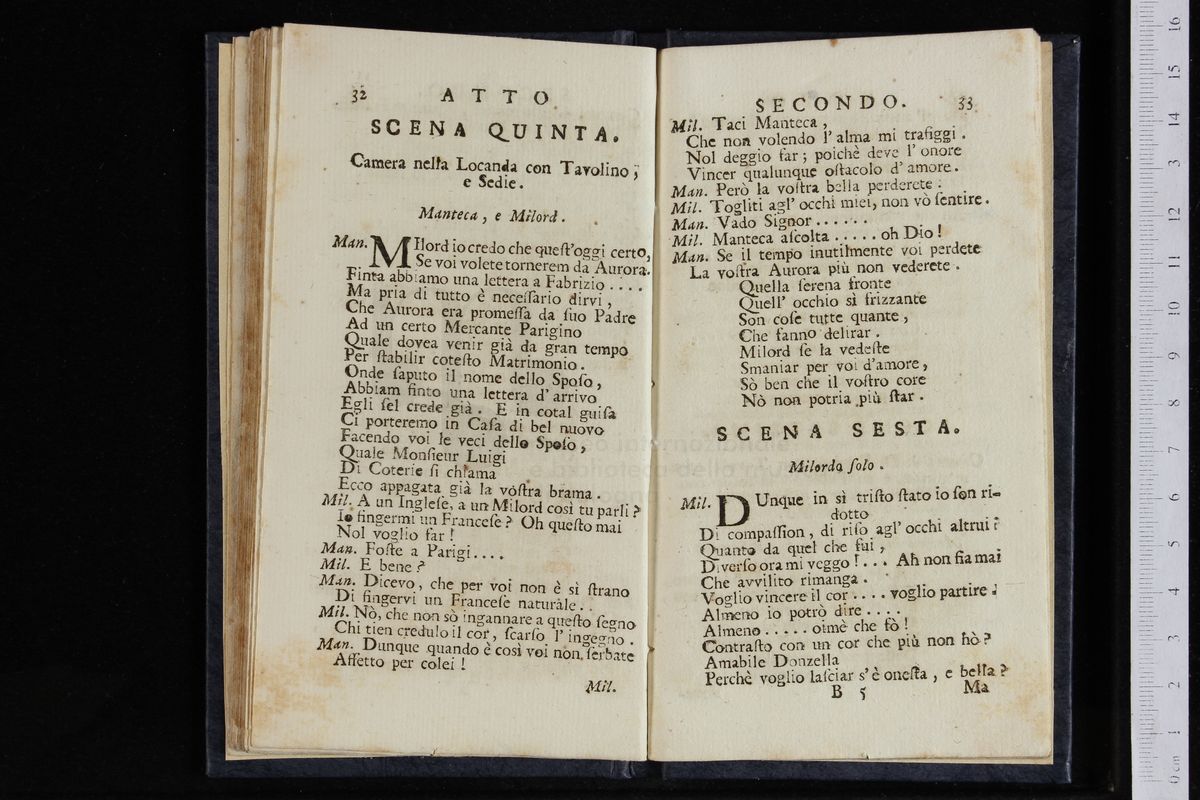 32 ATTO
SCENA QUINTA.
Camera nella Locanda con Tavolino,
e Sedie.
Manteca, e Milord.
Man. MIlord io credo che queſt'oggi certo,
Se voi volete tornerem da Aurora.
Finta abbiamo una lettera a Fabrizio ....
Ma pria di tutto è neceſſario dirvi,
Che Aurora era promeſſa da ſuo Padre
Ad un certo Mercante Parigino
Quale dovea venir già da gran tempo
Per ſtabilir coteſto Matrimonio.
Onde ſaputo il nome dello Spoſo,
Abbiam finto una lettera d'arrivo
Egli ſel crede già. E in cotal guiſa
Ci porteremo in Caſa di bel nuovo
Facendo voi le veci dello Spoſo,
Quale Monſieur Luigi
Di Coterie ſi chiama
Ecco appagata già la voſtra brama.
Mil. A un Ingleſe, a un Milord così tu parli?
Io fingermi un Franceſe? Oh queſto mai
Nol voglio far!
Man. Foſte a Parigi....
Mil. E bene?
Man. Dicevo, che per voi non è sì ſtrano
Di fingervi un Franceſe naturale..
Mil. Nò, che non sò ingannare a queſto ſegno
Chi tien credulo il cor, ſcarſo l'ingegno.
Man. Dunque quando è così voi non ſerbate
Affetto per colei!
Mil.
SECONDO. 33
Mil. Taci Manteca,
Che non volendo l'alma mi trafiggi.
Nol deggio far; poichè deve l'onore
Vincer qualunque oſtacolo d'amore.
Man. Però la voſtra bella perderete.
Mil. Togliti agl'occhi miei, non vò ſentire.
Man. Vado Signor ......
Mil. Manteca aſcolta ..... oh Dio!
Man. Se il tempo inutilmente voi perdete
La voſtra Aurora più non vederete.
Quella ſerena fronte
Quell'occhio sì frizzante
Son coſe tutte quante,
Che fanno delirar.
Milord ſe la vedeſte
Smaniar per voi d'amore,
Sò ben che il voſtro core
Nò non potria più ſtar.
SCENA SESTA.
Milordo ſolo.
Mil. DUnque in sì triſto ſtato io ſon ri-
dotto
Di compaſſion, di riſo agl'occhi altrui?
Quanto da quel che fui,
Diverſo ora mi veggo!... Ah non fia mai
Che avvilito rimanga.
Voglio vincere il cor .... voglio partire.
Almeno io potrò dire ....
Almeno ..... oimè che fò!
Contraſto con un cor che più non hò?
Amabile Donzella
Perchè voglio laſciar s'è oneſta, e bella?
B 5 Ma